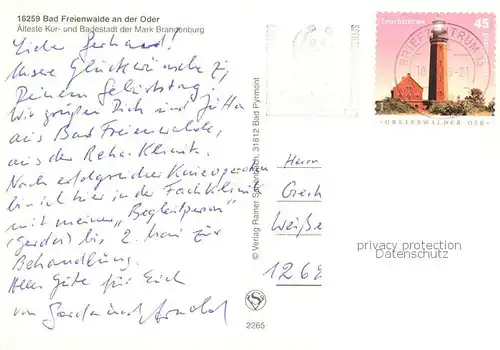 16259 Bad Freienwalde an der Oder
Älteste Kur- und Badestadt der Mark Brandenburg
Lieber Gerhard!
Unsere Glückwünsche zu
Deinem Geburtstag!
Wir grüßen Dich und Jutta
aus Bad Freienwalde,
aus der Reha-Klinik.
Nach erfolgreicher Knieoperation
bin ich hier in der Fachklinik
mit meiner „Begleitperson"
(Gerda) bis 2. Mai zur
Behandlung.
Alles Gute für Euch
von Gerda und
© Verlag Rainer Schönbach, 31812 Bad Pyrmont
2265
Leuchttürme 45
BRIEFZENTRUM 15
GREIFSWALDER OIE
Herrn
Weiße
126
privacy protection
Datenschutz